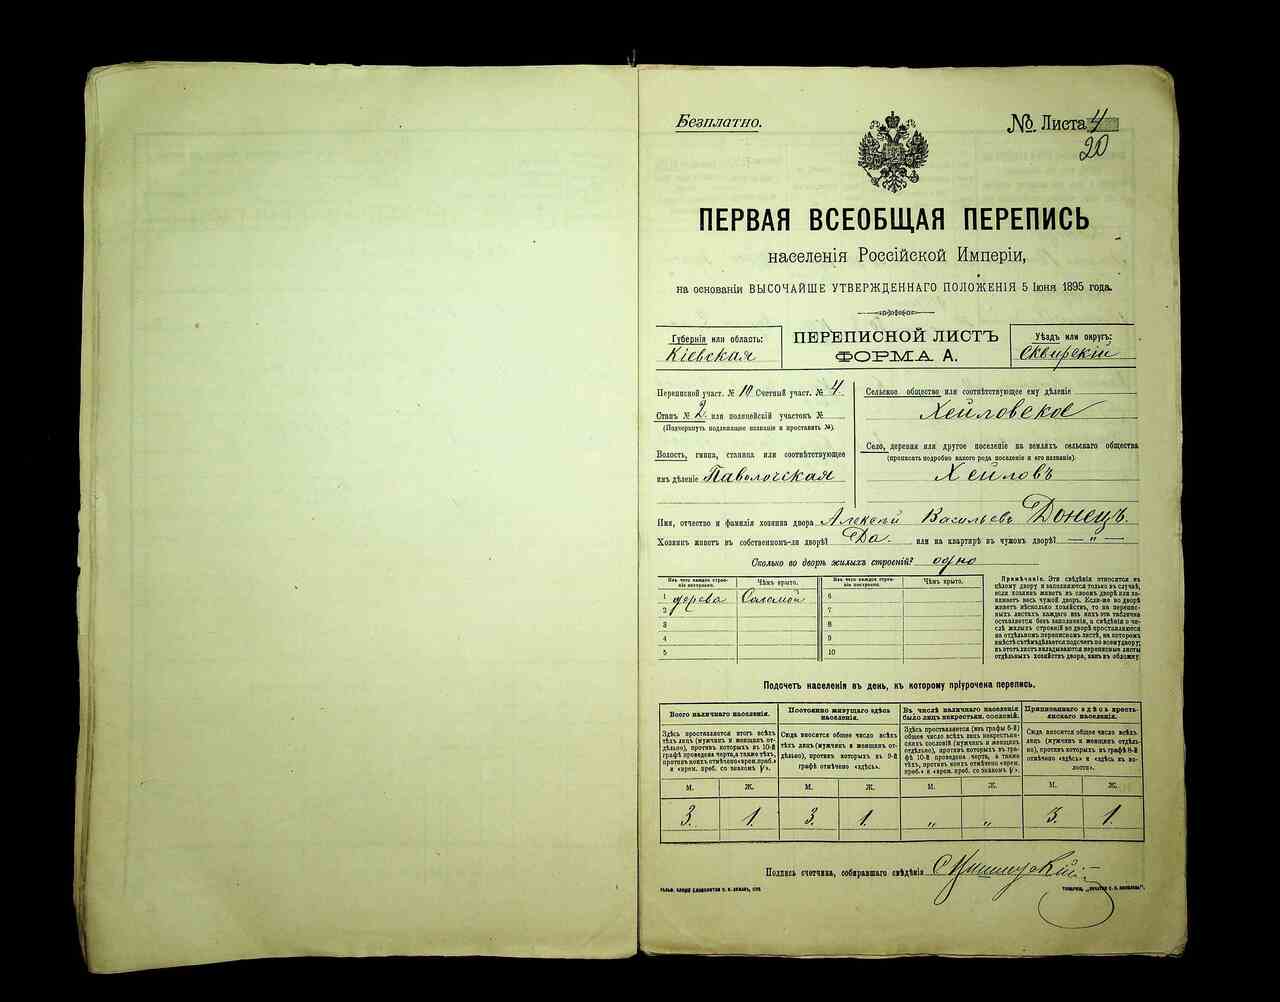 Безплатно.
№ Листа 4
20
ПЕРВАЯ ВСЕОБЩАЯ ПЕРЕПИСЬ
населенія Россійской Имперіи,
на основаніи ВЫСОЧАЙШЕ УТВЕРЖДЕННАГО ПОЛОЖЕНІЯ 5 Іюня 1895 года.
Губернія или область:
Кіевская
ПЕРЕПИСНОЙ ЛИСТЪ
ФОРМА А.
Уѣздъ или округъ:
Сквирскій
Переписной участ. № 10 Счетный участ. № 4
Станъ № 2 или полицейскій участокъ №
(Подчеркнуть подлежащее названіе и проставить №).
Волость, гмина, станица или соотвѣтствующее
имъ дѣленіе Паволочская
Сельское общество или соотвѣтствующее ему дѣленіе
Хейловское
Село, деревня или другое поселеніе на земляхъ сельскаго общества
(прописать подробно какого рода поселеніе и его названіе).
Хейловъ
Имя, отчество и фамилія хозяина двора Алексѣй Васильевъ Донецъ.
Хозяинъ живетъ въ собственномъ-ли дворѣ? Да. или на квартирѣ въ чужомъ дворѣ? — „ —
Сколько во дворѣ жилыхъ строеній? одно
Изъ чего каждое строе-
ніе построено.
Чѣмъ крыто.
Изъ чего каждое строе-
ніе построено.
Чѣмъ крыто.
1 дерева Соломой 6
2 7
3 8
4 9
5 10
Примѣчаніе. Эти свѣдѣнія относятся къ
цѣлому двору и заполняются только въ случаѣ,
если хозяинъ живетъ въ своемъ дворѣ или за-
нимаетъ весь чужой дворъ. Если-же во дворѣ
живетъ нѣсколько хозяйствъ, то на перепис-
ныхъ листахъ каждаго изъ нихъ эта табличка
оставляется безъ заполненія, а свѣдѣнія о чи-
слѣ жилыхъ строеній во дворѣ проставляются
на отдѣльномъ переписномъ листѣ, на которомъ
вмѣстѣ съ тѣмъ дѣлается подсчетъ по всему двору;
въ этотъ листъ вкладываются переписные листы
отдѣльныхъ хозяйствъ двора, какъ въ обложку.
Подсчетъ населенія въ день, къ которому пріурочена перепись.
Всего наличнаго населенія.
Здѣсь проставляется итогъ всѣхъ
тѣхъ лицъ (мужчинъ и женщинъ от-
дѣльно), противъ которыхъ въ 10-й
графѣ проведена черта, а также тѣхъ,
противъ коихъ отмѣчено «врем. преб.»
и «врем. преб. со знакомъ V».
Постоянно живущаго здѣсь
населенія.
Сюда вносится общее число всѣхъ
тѣхъ лицъ (мужчинъ и женщинъ от-
дѣльно), противъ которыхъ въ 9-й
графѣ отмѣчено «здѣсь».
Въ числѣ наличнаго населенія
было лицъ некрестьян. сословій.
Здѣсь проставляется (изъ графы 6-й)
общее число всѣхъ лицъ некрестьян-
скихъ сословій (мужчинъ и женщинъ
отдѣльно), противъ которыхъ въ гра-
фѣ 10-й проведена черта, а также
«врем. преб.» и «врем. преб. со знакомъ V».
Приписаннаго здѣсь кресть-
янскаго населенія.
Сюда вносится общее число всѣхъ
лицъ (мужчинъ и женщинъ отдѣль-
но), противъ которыхъ въ графѣ 8-й
отмѣчено «здѣсь» и «здѣсь въ во-
лости».
М. Ж. М. Ж. М. Ж. М. Ж.
3. 1. 3. 1. „ „ 3. 1.
Подпись счетчика, собиравшаго свѣдѣнія